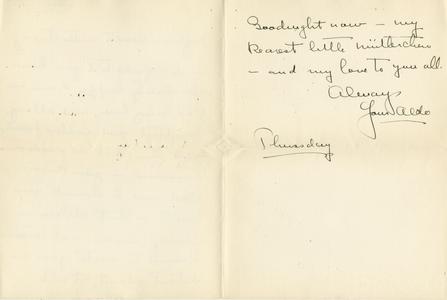 Goodnight now – my
Dearest little mütterchen
– and my love to you all.
Always
Your Aldo
Thursday